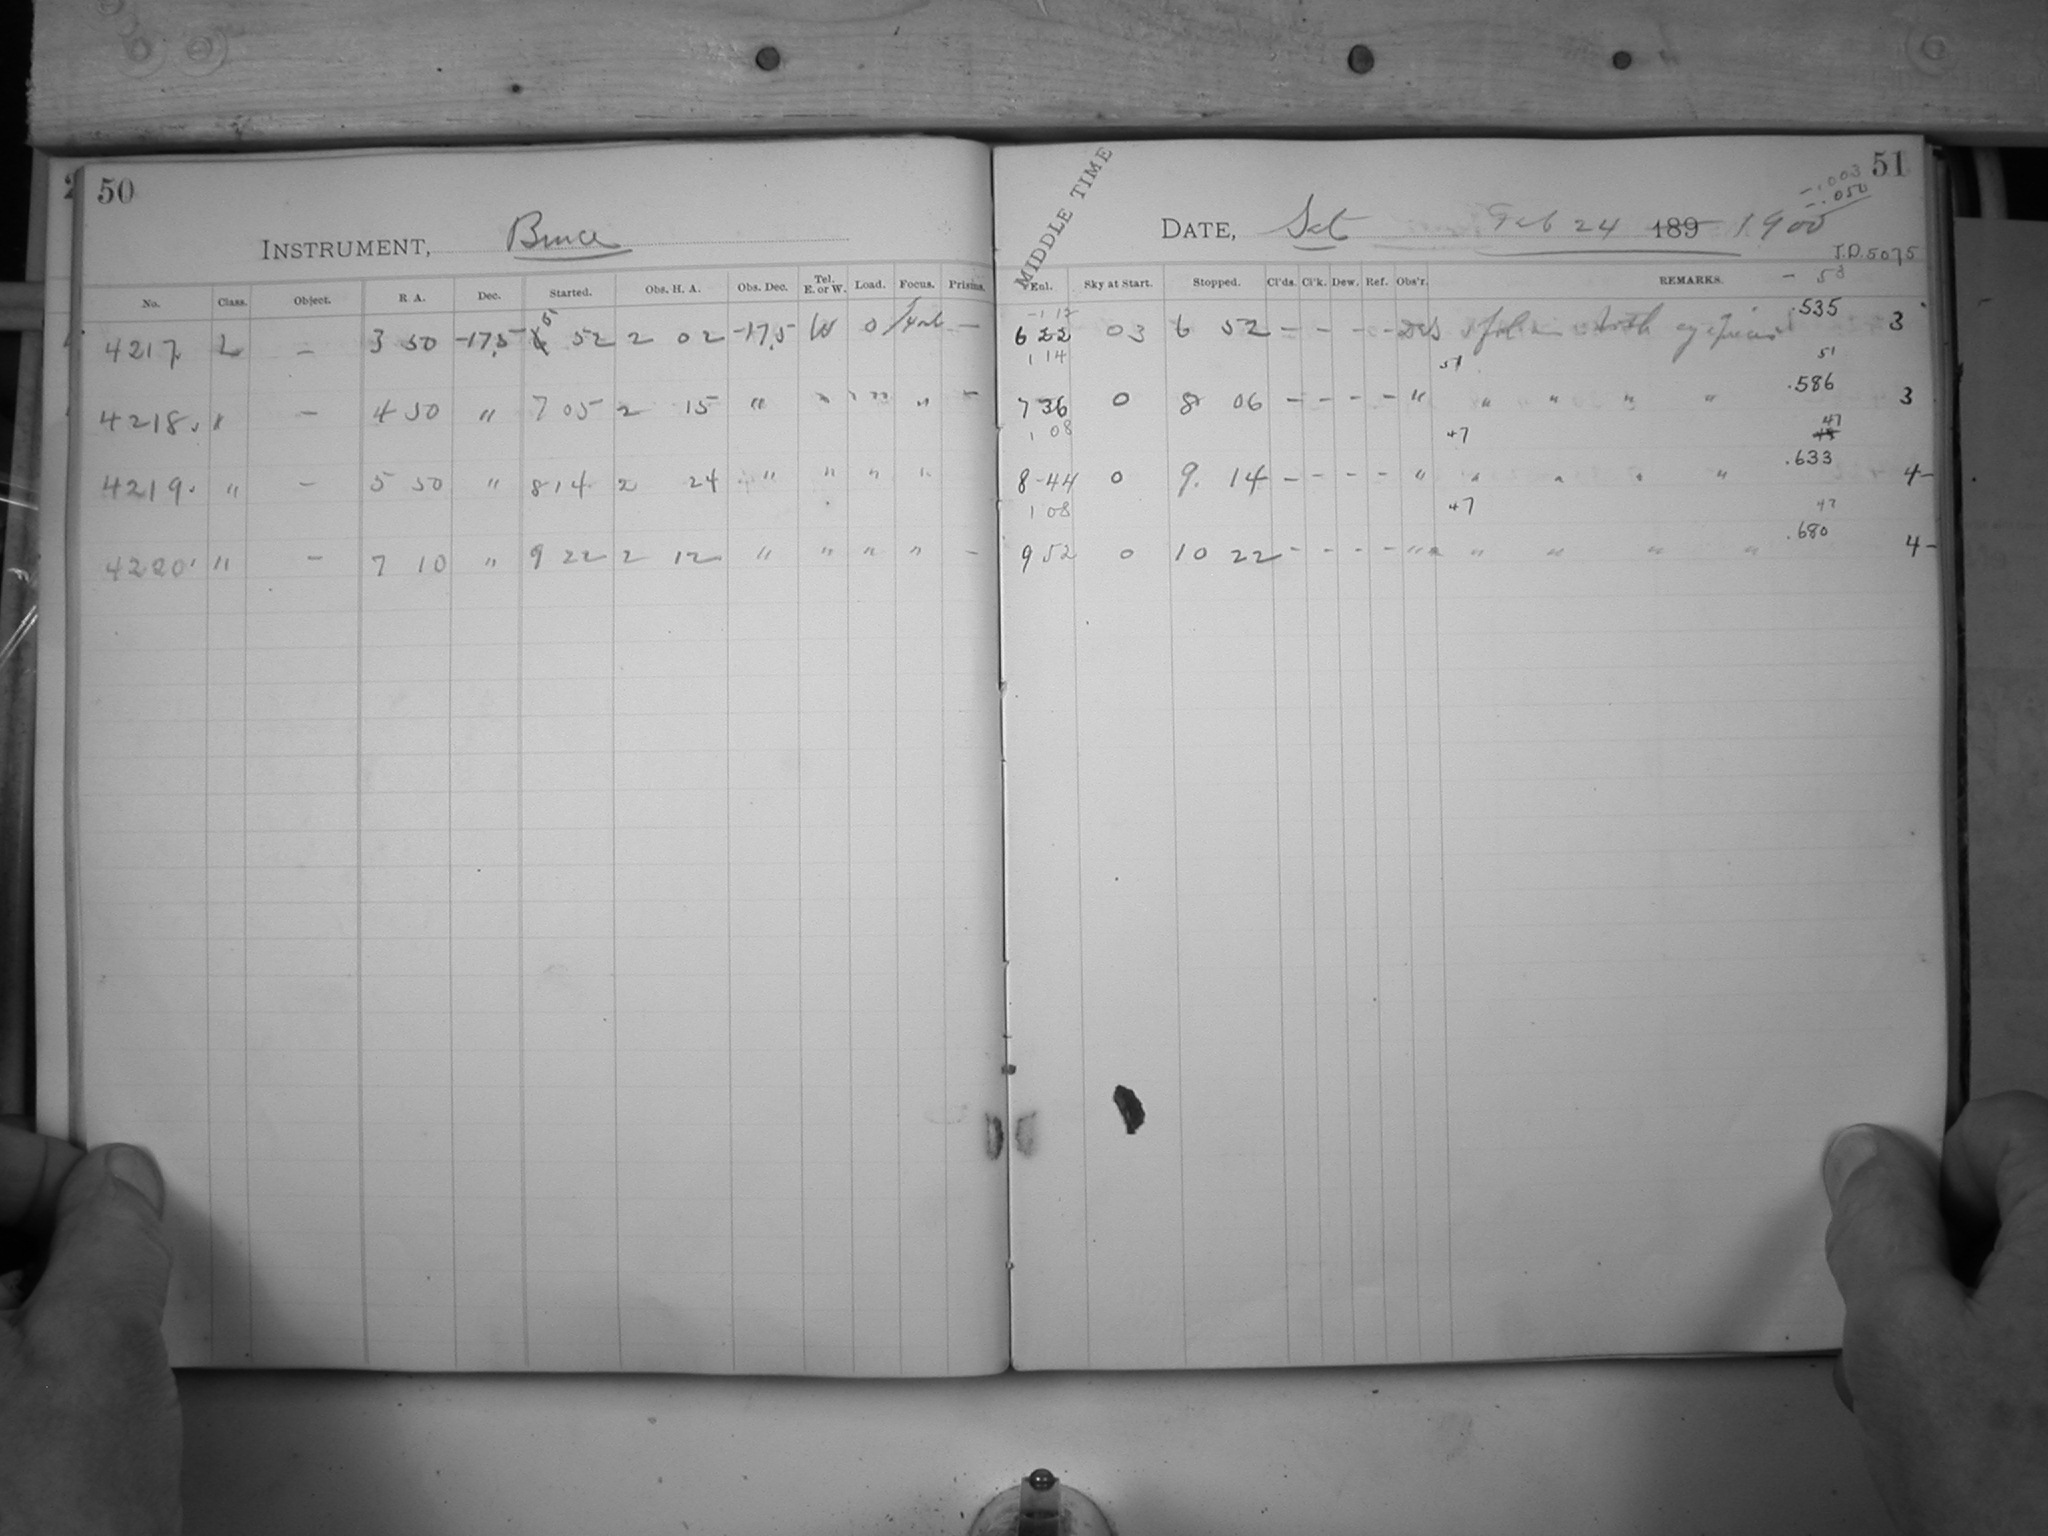 50
INSTRUMENT, Bruce
No. Class. Object. R A. Dec. Started. Obs. H. A. Obs. Dec. Tel. E. or W. Load. Focus. Prisms.
4217 L — 3 50 -17.5 5 52 2 02 -17.5 W 0 —
4218 " — 4 50 " 7 05 2 15 " " " " —
4219 " — 5 50 " 8 14 2 24 " " " "
4220 " — 7 10 " 9 22 2 12 " " " " —
MIDDLE TIME
51
-.003
-.050
DATE, Sat Feb 24 189 1900
J.D. 5075
Enl. Sky at Start. Stopped. Cl'ds. Cl'k. Dew. Ref. Obs'r. REMARKS.
- 53
.535
6 22 03 6 52 — — — — with eyepiece 3
1 14 51 51
.586
7 36 0 8 06 — — — — " " " " " 3
1 08 47 47
.633
8-44 0 9. 14 — — — — " " " " " 4-
1 08 47 47
.680
9 52 0 10 22 — — — — " " " " " 4-